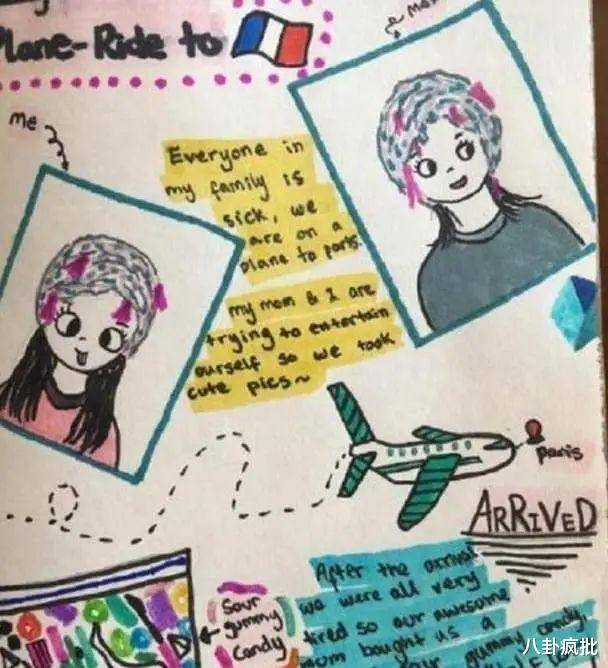 Plane-Ride to
me
Everyone in
my family is
sick, we
are on a
plane to paris.
my mom & I are
trying to entertain
ourself so we took
cute pics~
paris
ARRIVED
Sour
gummy
Candy
After the arrival
we were all very
tired so our awesome
mom bought us a
gummy candy,
八卦疯批